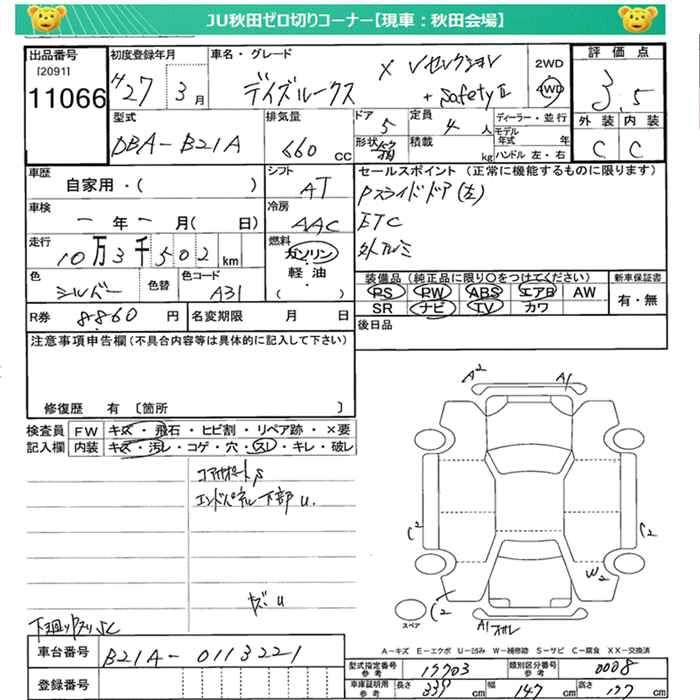 JU秋田ゼロ切りコーナー【現車：秋田会場】
出品番号 [2091] 11066
初度登録年月 H27 3月
車名・グレード デイズルークス X Vセレクション +SafetyⅡ
2WD 4WD
評価点 3.5
外装 内装 C C
型式 DBA-B21A
排気量 660cc
ドア 5
定員 4人
形状 箱
積載 kg
ディーラー・並行
モデル年式 年
ハンドル 左・右
車歴 自家用・( )
シフト AT
セールスポイント(正常に機能するものに限ります)
Pスライドドア(左)
ETC
外アルミ
車検 ー年ー月(日)
冷房 AAC
走行 10万3千502km
燃料 ガソリン 軽油 ( )
色 シルバー
色替
色コード A31
装備品(純正品に限り〇をつけてください)
PS PW ABS エアB AW
SR ナビ TV カワ
新車保証書 有・無
R券 8860円
名変期限 月 日
後日品
注意事項申告欄(不具合内容等は具体的に記入して下さい)
修復歴 有 〔箇所 〕
検査員 FW キズ・飛石・ヒビ割・リペア跡・×要
記入欄 内装 キズ・汚レ・コゲ・穴・スレ・キレ・破レ
コアサポートS
エンドパネル下部U.
キズU
下廻りサビSC
A2
A1
C2
C2
W2
C2
A1
スペア
A－キズ E－エクボ U－凹み W－補修跡 S－サビ C－腐食 XX－交換済
車台番号 B21A-0113221
登録番号
型式指定番号 参考 17703
類別区分番号 参考 0008
車庫証明用 参考 長さ 339cm 幅 147cm 高さ 177cm